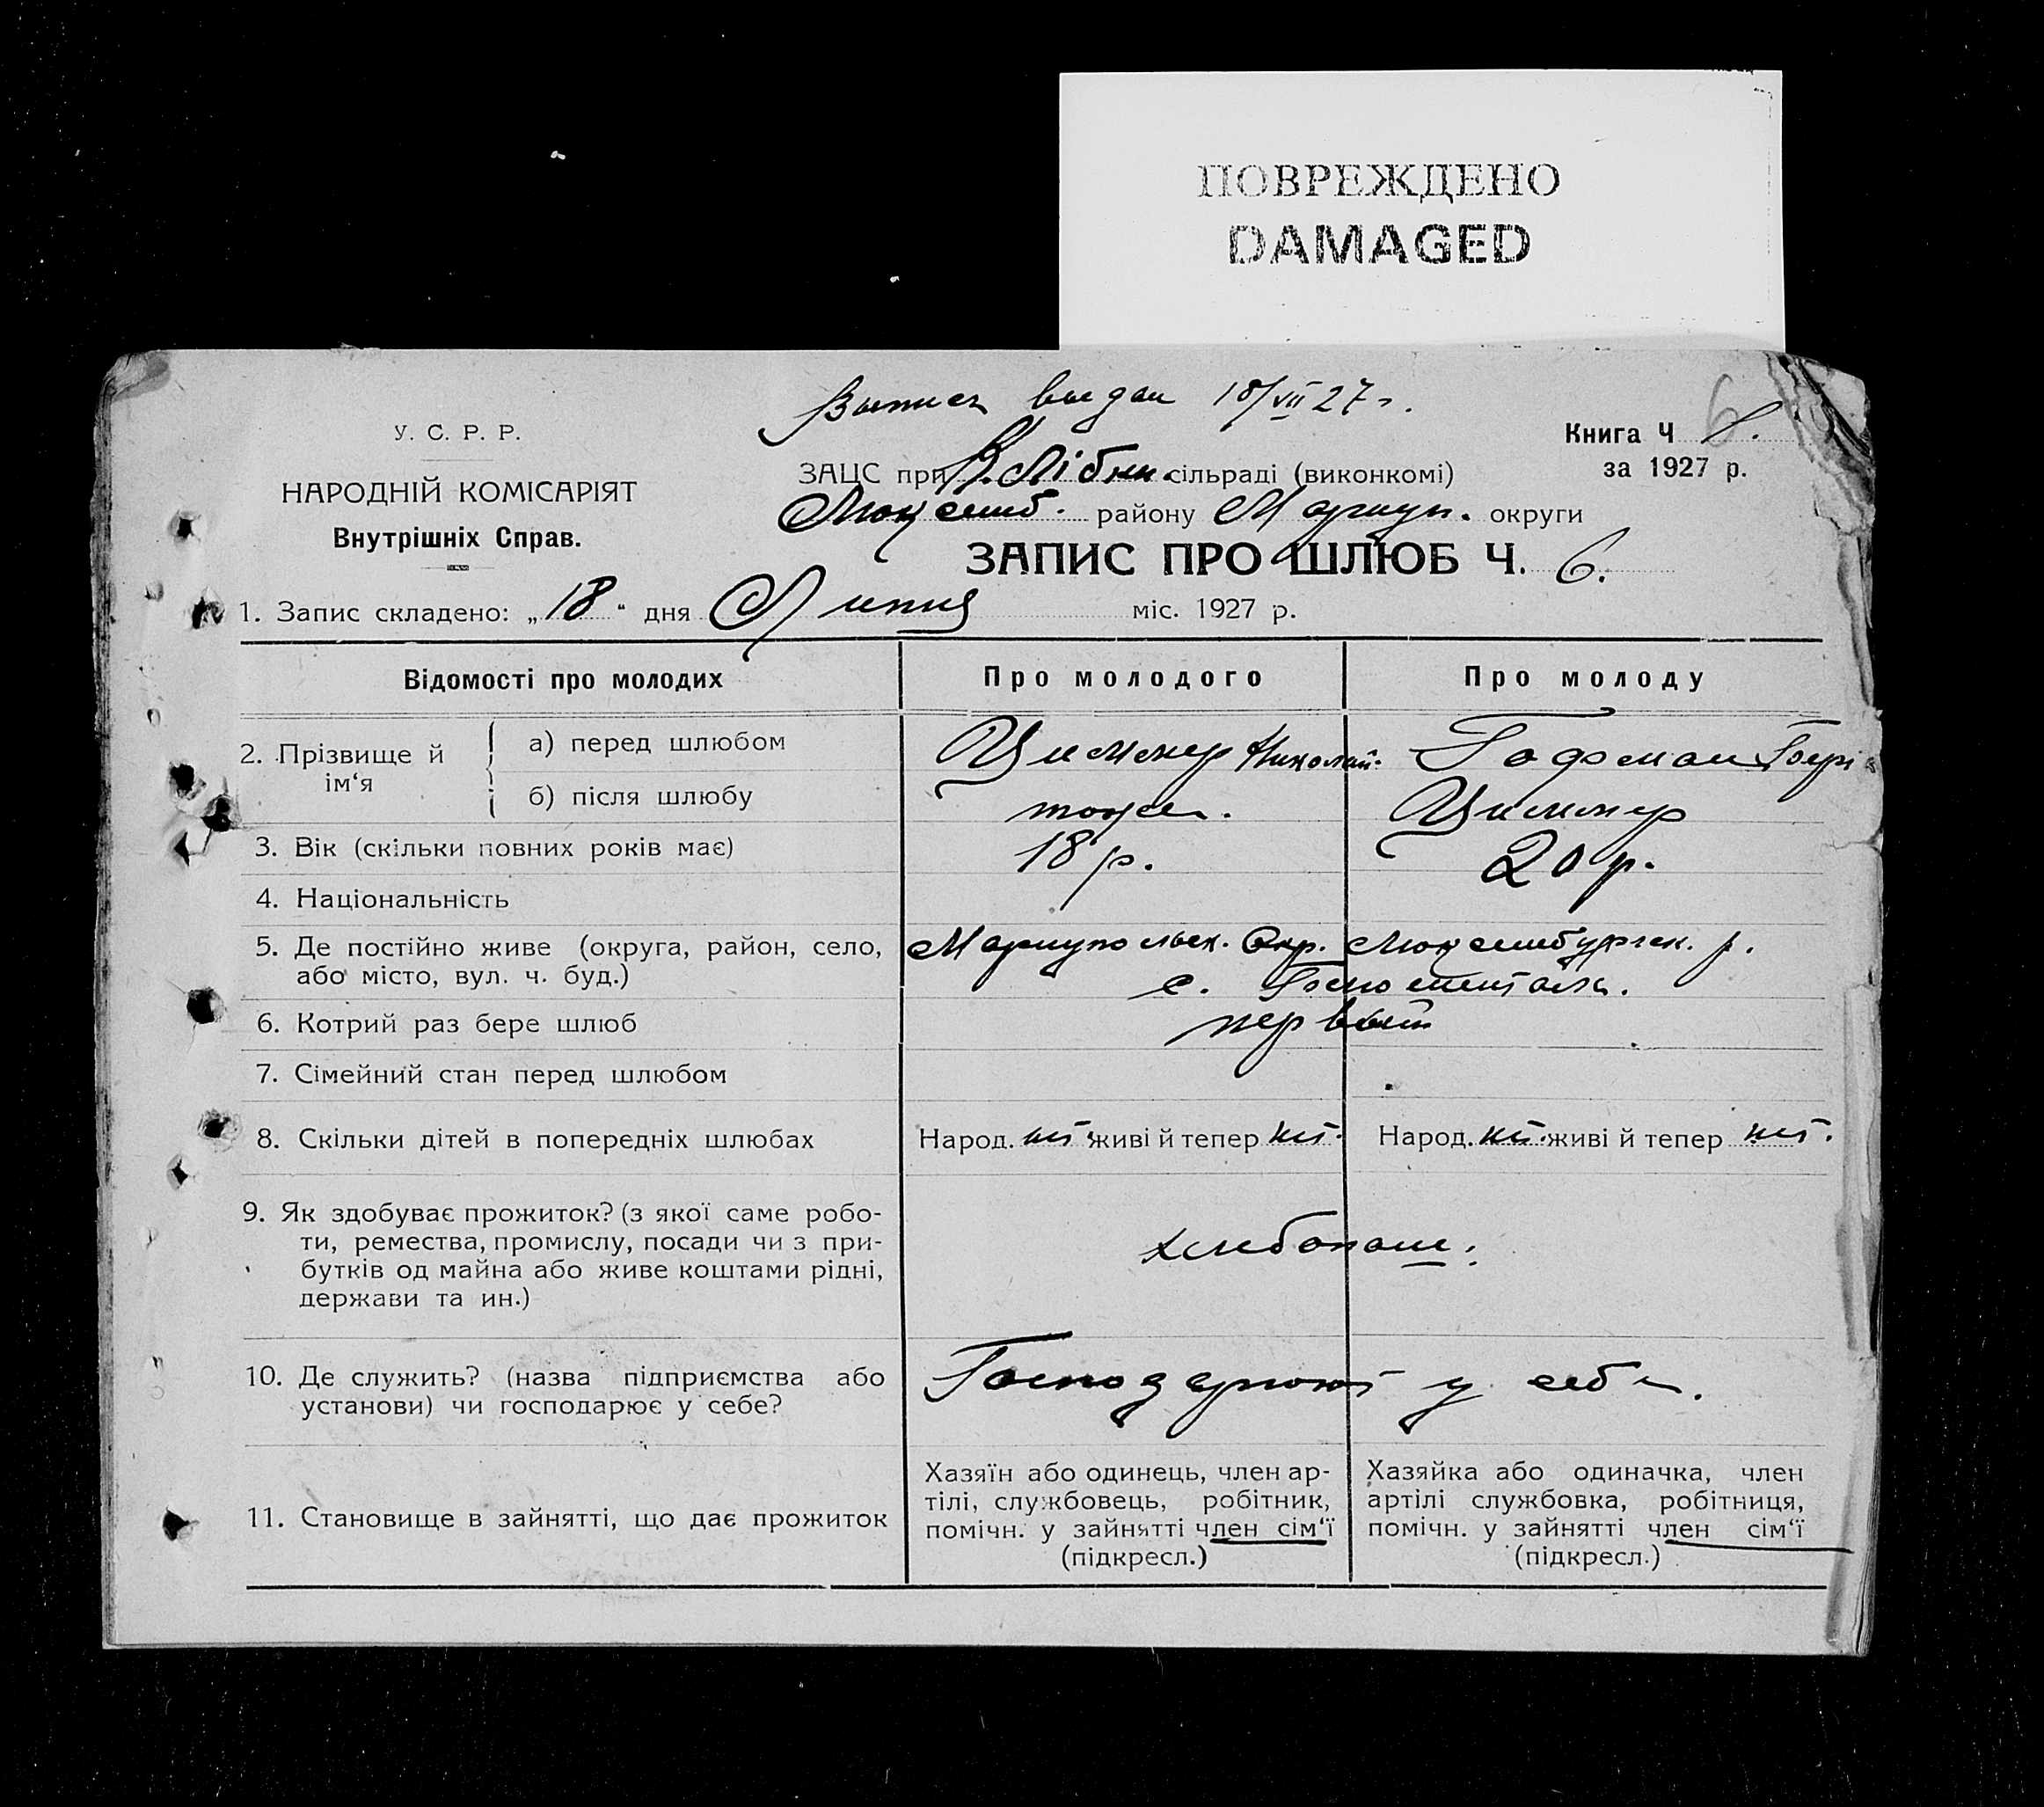 ПОВРЕЖДЕНО
DAMAGED
Выпись выдан 18/VII 27 г.
У. С. Р. Р.
Книга Ч
НАРОДНІЙ КОМІСАРІЯТ
Внутрішніх Справ.
ЗАЦС при В. Лібкн. сільраді (виконкомі)
за 1927 р.
Люксемб. району Мариуп. округи
ЗАПИС ПРО ШЛЮБ Ч. 6.
6
1. Запис складено: „18“ дня Липня міс. 1927 р.
Відомості про молодих
Про молодого
Про молоду
2. Прізвище й ім‘я
а) перед шлюбом
Циммер Николай.
Гофман
б) після шлюбу
тоже.
Циммер
3. Вік (скільки повних років має)
18 р.
20 р.
4. Національність
5. Де постійно живе (округа, район, село,
або місто, вул. ч. буд.)
Мариупольск. Окр. Люксембургск. р.
с.
6. Котрий раз бере шлюб
первый
7. Сімейний стан перед шлюбом
8. Скільки дітей в попередніх шлюбах
Народ. нет живі й тепер нет.
Народ. нет. живі й тепер нет.
9. Як здобуває прожиток? (з якої саме робо-
ти, ремества, промислу, посади чи з при-
бутків од майна або живе коштами рідні,
держави та ин.)
хлебопаш.
10. Де служить? (назва підприємства або
установи) чи господарює у себе?
Господарюют у себе.
11. Становище в зайнятті, що дає прожиток
Хазяїн або одинець, член ар-
тілі, службовець, робітник,
помічн. у зайнятті член сім‘ї
(підкресл.)
Хазяйка або одиначка, член
артілі службовка, робітниця,
помічн. у зайнятті член сім‘ї
(підкресл.)